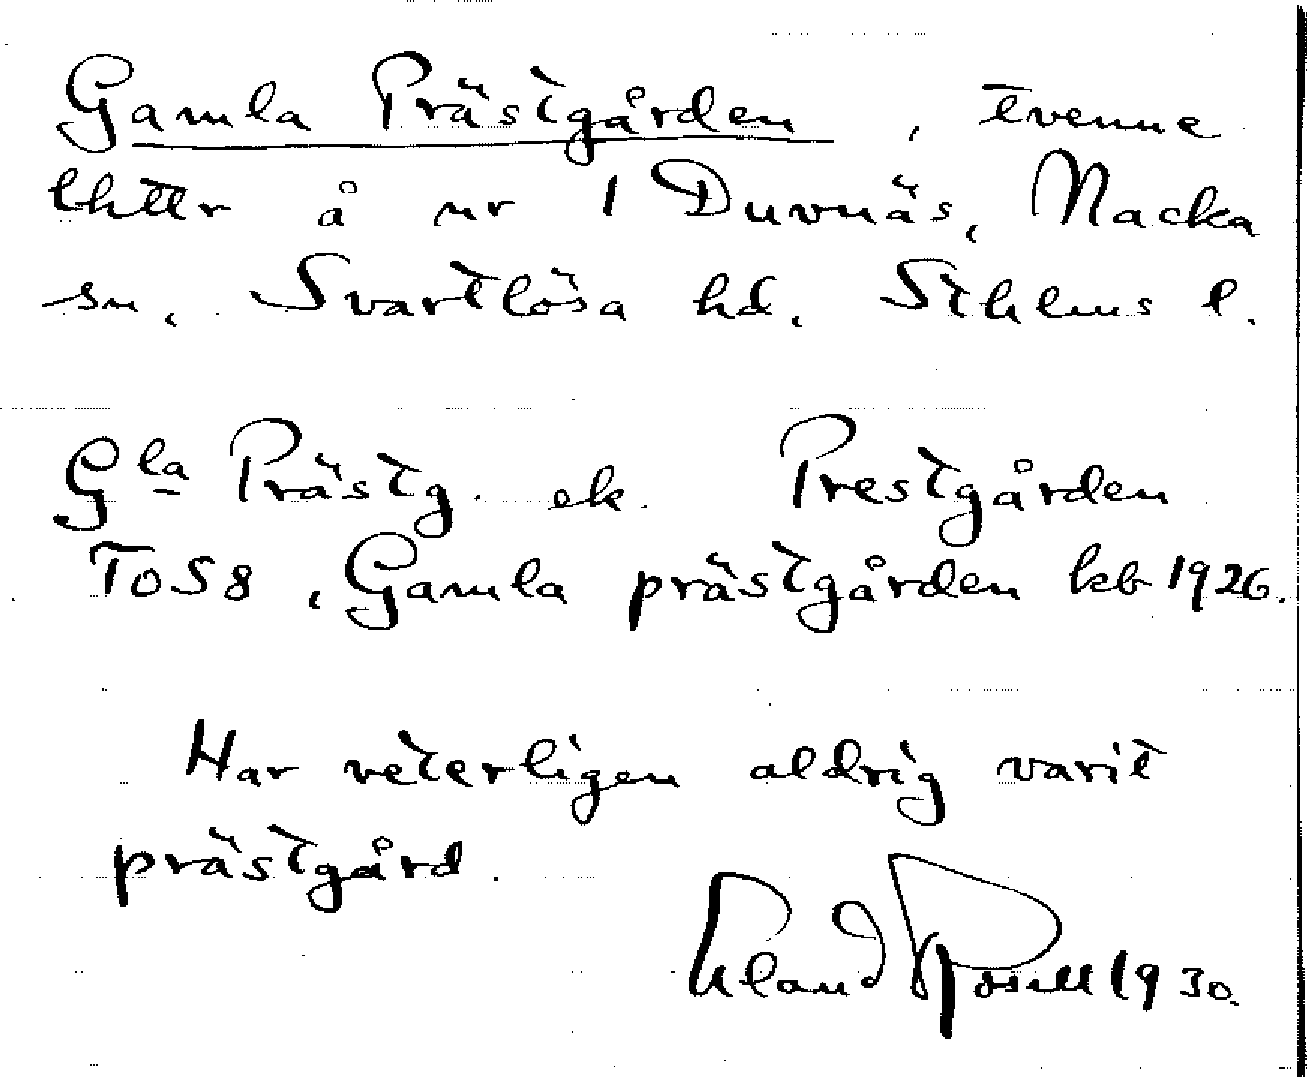 Gamla Prästgården, tvenne
lhttr å nr 1 Duvnäs, Nacka
sn, Svartlösa hd, Sthlms l.
Gla Prästg. ek. Prestgården
ToS8, Gamla prästgården kb 1926.
Har veterligen aldrig varit
prästgård.
1930.